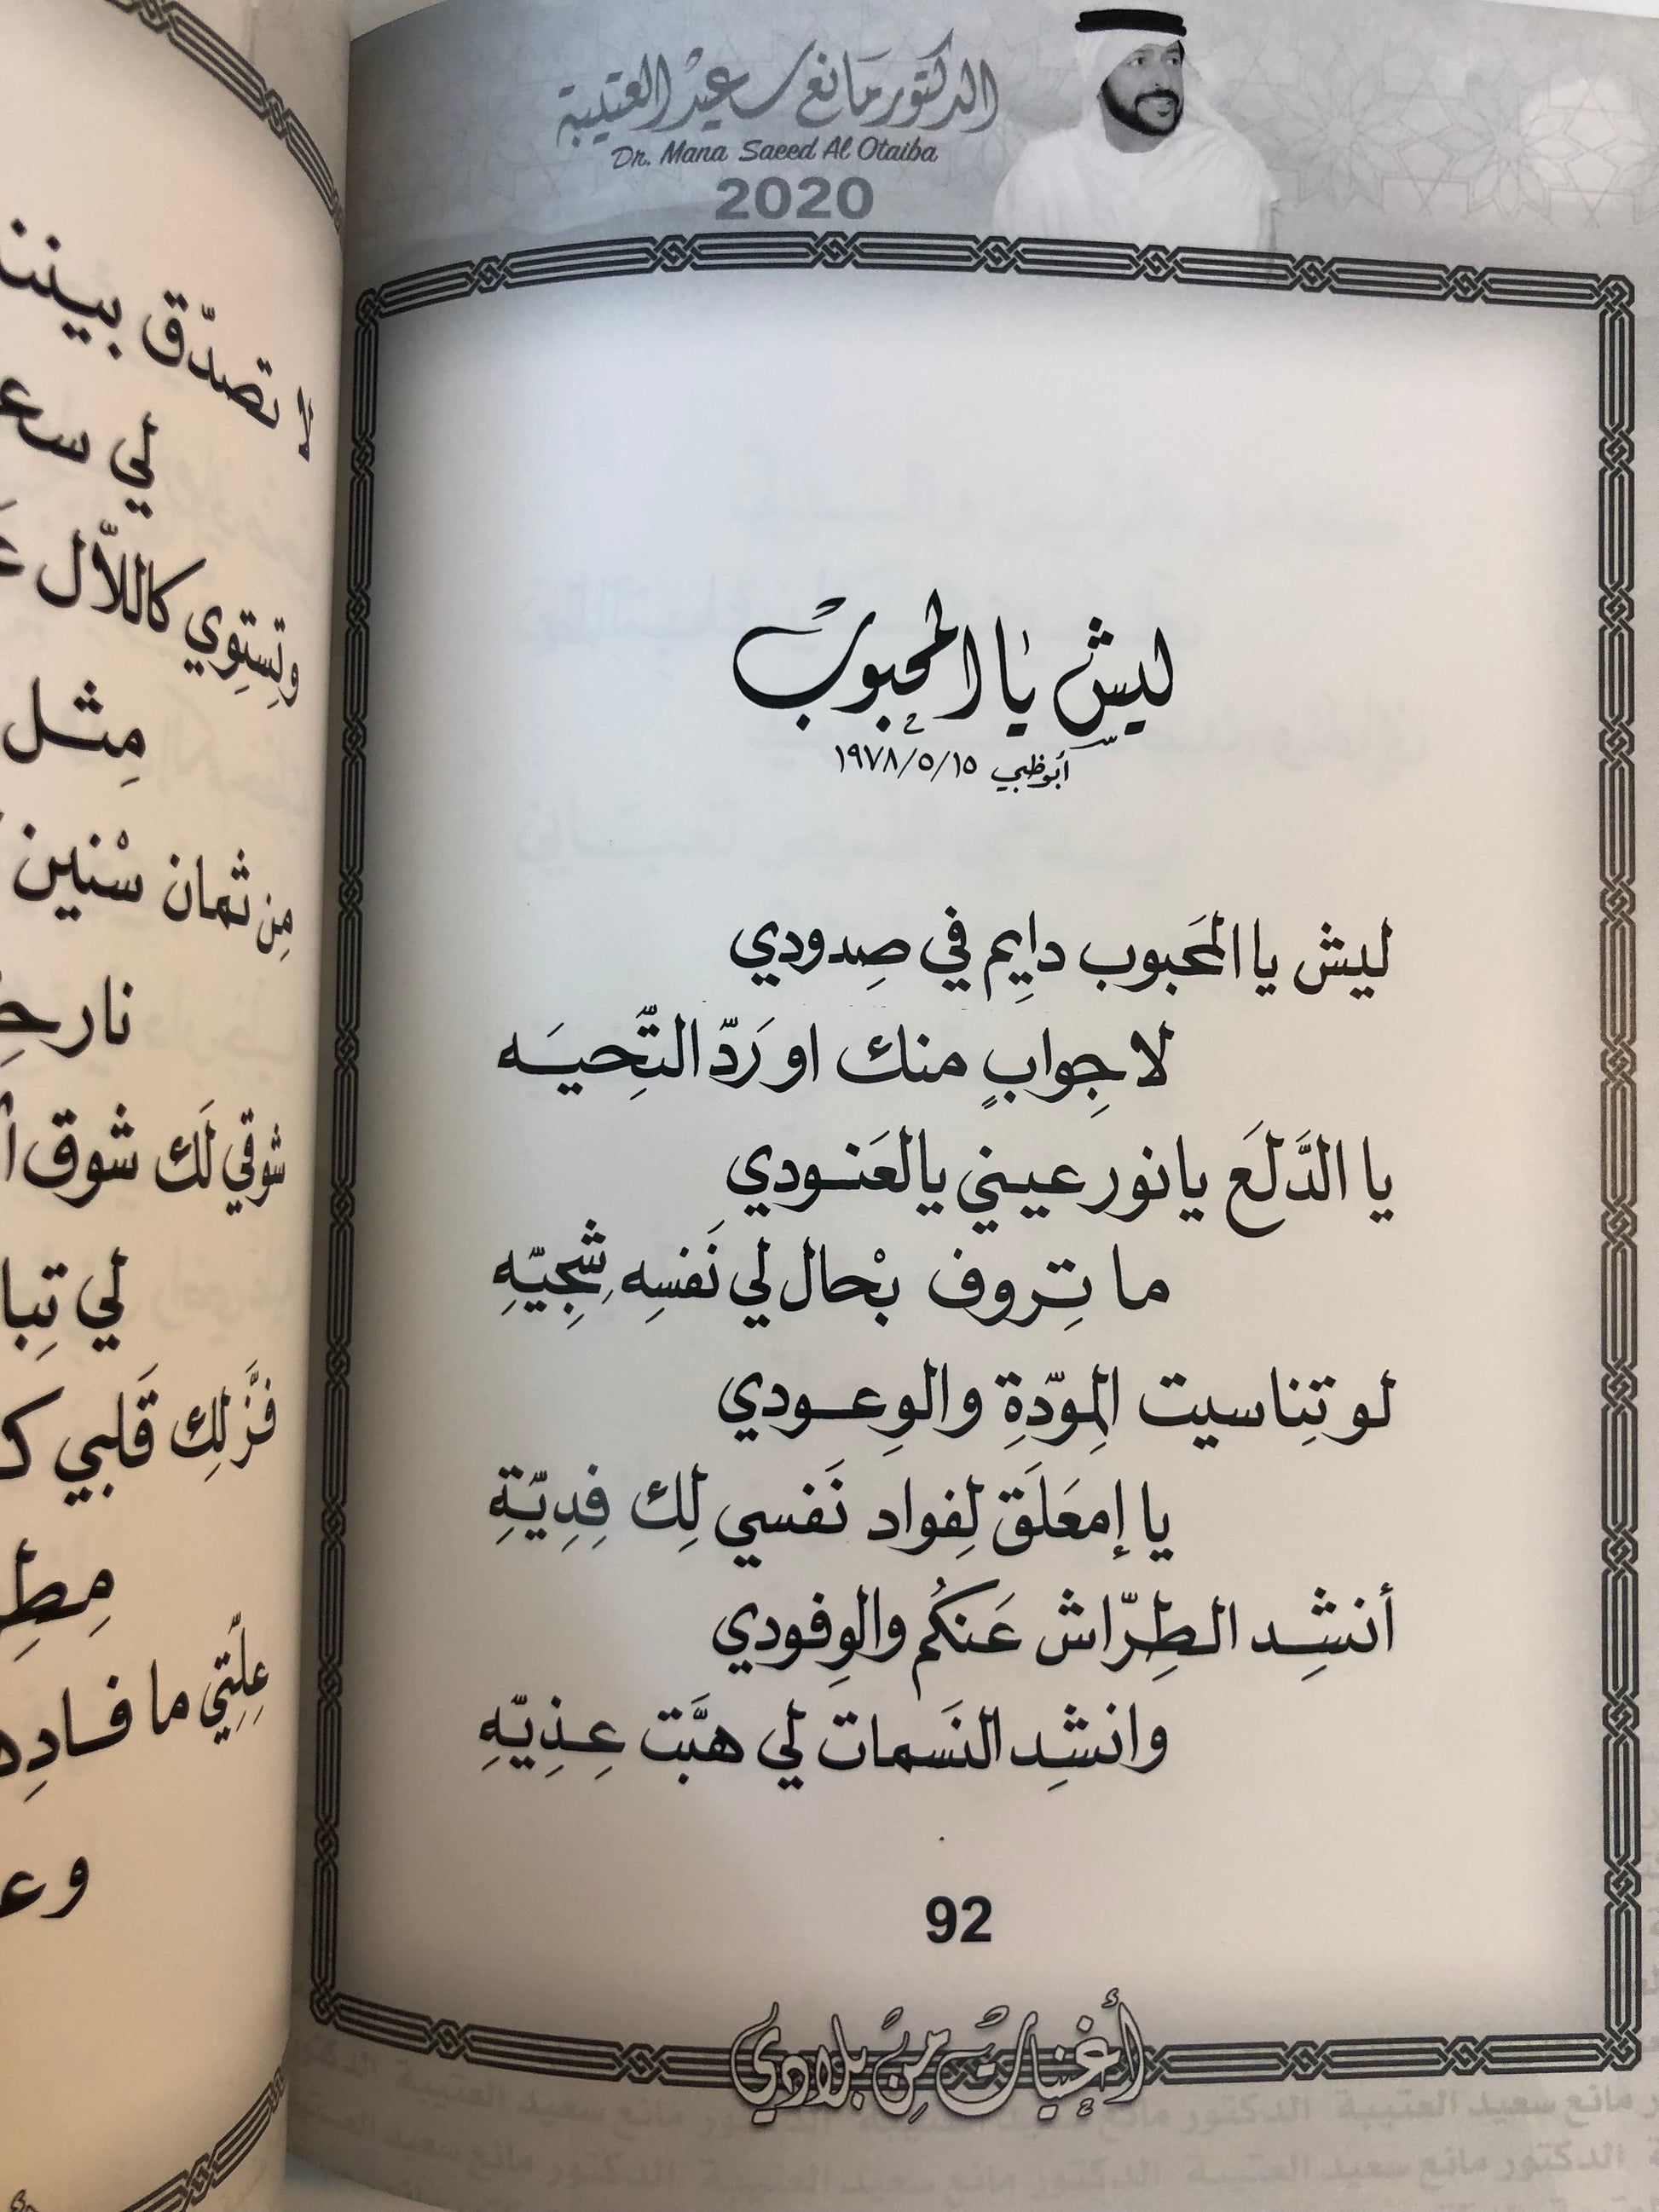 الدكتور مانع سعيد العتيبة
Dr. Mana Saeed Al Otaiba
2020
ليش يا المحبوب
أبوظبي ١٩٧٨/٥/١٥
ليش يا المَحبوب دايِم في صِدودي
لا جِوابٍ منك او رَدّ التّحِيَـه
يا الدَّلَع يا نور عيني يالعَنـودي
ما تِـروف بْحال لي نَفسِه شِجِيّـهِ
لو تِناسيت المِودّةِ والوِعـودي
يا إمعَلَق لِفواد نَفسي لِك فِدِيّـةِ
أنشِـد الطِرّاش عَنكُم والوِفودي
وانشِد النَسمات لي هبَّت عِـذِيّـهِ
92
أغنيات من بلادي
لا تصدّق
لي
وتِستِوي كاللاّل
مِثـل
مِن ثمان سْنين
نار
شوقي لَك شوق
لي
فَزّ لِك قَلبي
عِلِّتِي ما
الدكتور مانع سعيد العتيبة الدكتور مانع سعيد العتيبة
الدكتور مانع سعيد العتيبة الدكتور مانع سعيد العتيبة الدكتور مانع سعيد